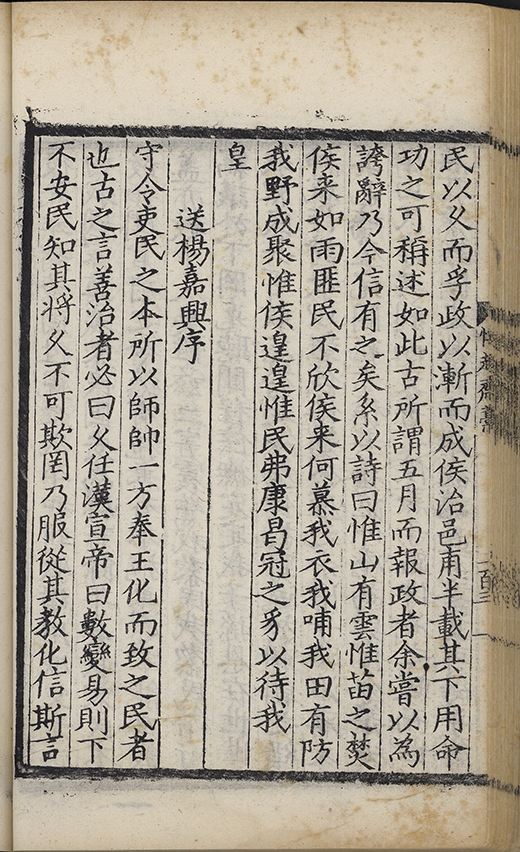 民以久而孚政以漸而成侯治邑甫半載其下用命
功之可稱述如此古所謂五月而報政者余嘗以為
誇辭乃今信有之矣系以詩曰惟山有雲惟苗之焚
侯来如雨匪民不欣侯来何慕我衣我哺我田有防
我野成聚惟侯遑遑惟民弗康曷冠之豸以待我
皇
送楊嘉興序
守令吏民之本所以師帥一方奉王化而致之民者
也古之言善治者必曰久任漢宣帝曰數變易則下
不安民知其将久不可欺罔乃服從其教化信斯言